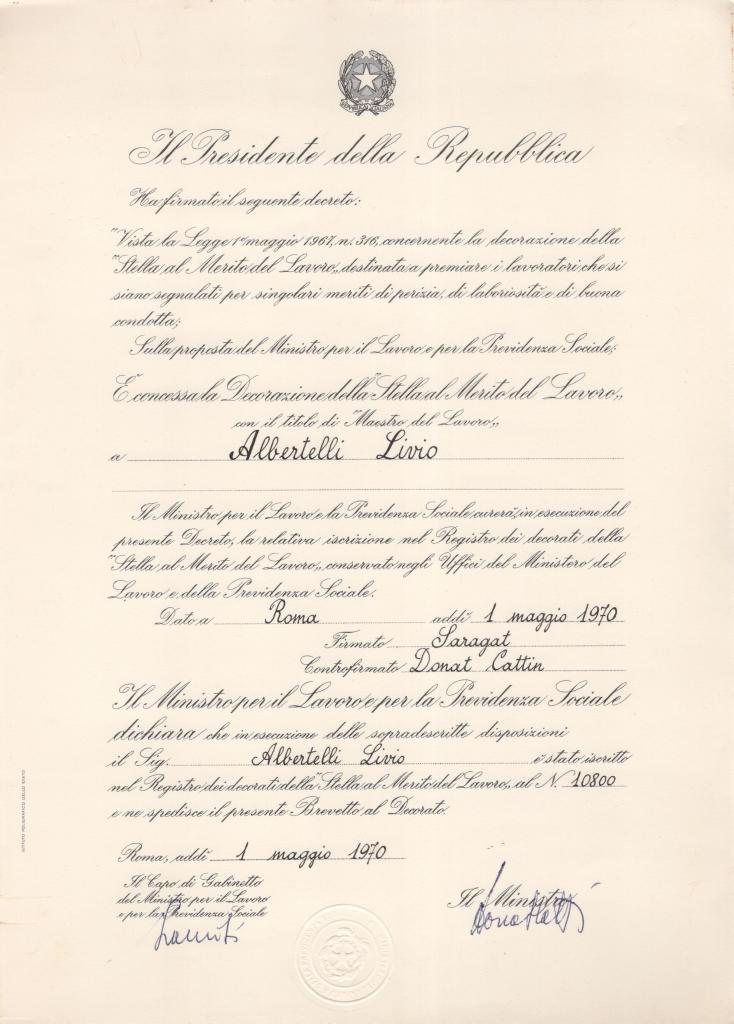 Il Presidente della Repubblica
Ha firmato il seguente decreto:
"Vista la Legge 1° maggio 1967, n. 316, concernente la decorazione della
"Stella al Merito del Lavoro„ destinata a premiare i lavoratori che si
siano segnalati per singolari meriti di perizia, di laboriosità e di buona
condotta;
Sulla proposta del Ministro per il Lavoro e per la Previdenza Sociale;
E' concessa la Decorazione della "Stella al Merito del Lavoro„
con il titolo di "Maestro del Lavoro„
a Albertelli Livio
Il Ministro per il Lavoro e la Previdenza Sociale curerà, in esecuzione del
presente Decreto, la relativa iscrizione nel Registro dei decorati della
"Stella al Merito del Lavoro„ conservato negli Uffici del Ministero del
Lavoro e della Previdenza Sociale.
Dato a Roma addì 1 maggio 1970
Firmato Saragat
Controfirmato Donat Cattin
Il Ministro per il Lavoro e per la Previdenza Sociale
dichiara che in esecuzione delle sopradescritte disposizioni
il Sig. Albertelli Livio è stato iscritto
nel Registro dei decorati della "Stella al Merito del Lavoro„ al N. 10800
e ne spedisce il presente Brevetto al Decorato.
Roma, addì 1 maggio 1970
Il Capo di Gabinetto
del Ministro per il Lavoro
e per la Previdenza Sociale
Il Ministro
ISTITUTO POLIGRAFICO DELLO STATO